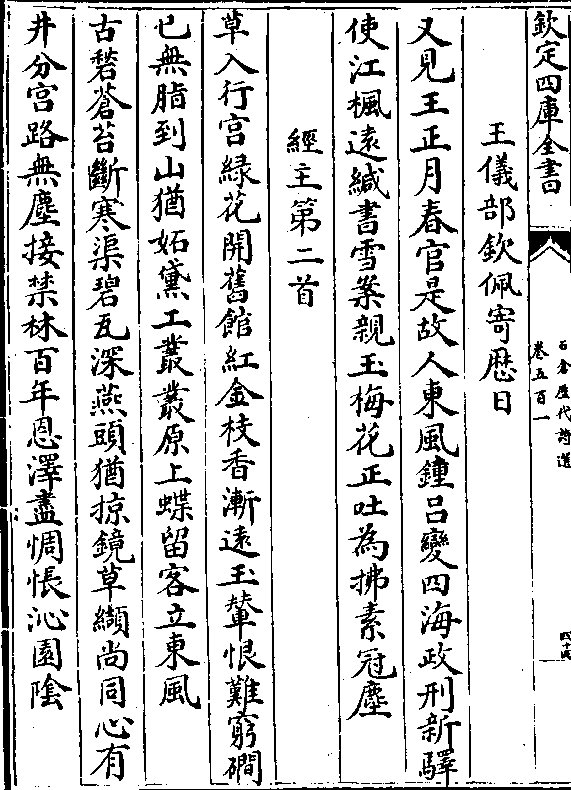 欽定四庫全書
石倉歷代詩選
卷五百一
四十四
王儀部欽佩寄厯日
又見王正月春官是故人東風鍾呂變四海政刑新驛
使江楓逺緘書雪案親玉梅花正吐為拂素冠塵
經主第二首
草入行宫緑花開舊館紅金枝香漸逺玉輦恨難窮磵
已無脂到山猶妬黛工叢叢原上蝶留客立東風
古甃蒼苔斷寒渠碧瓦深燕頭猶掠鏡草纈尚同心有
井分宫路無塵接禁林百年恩澤盡惆悵沁園陰